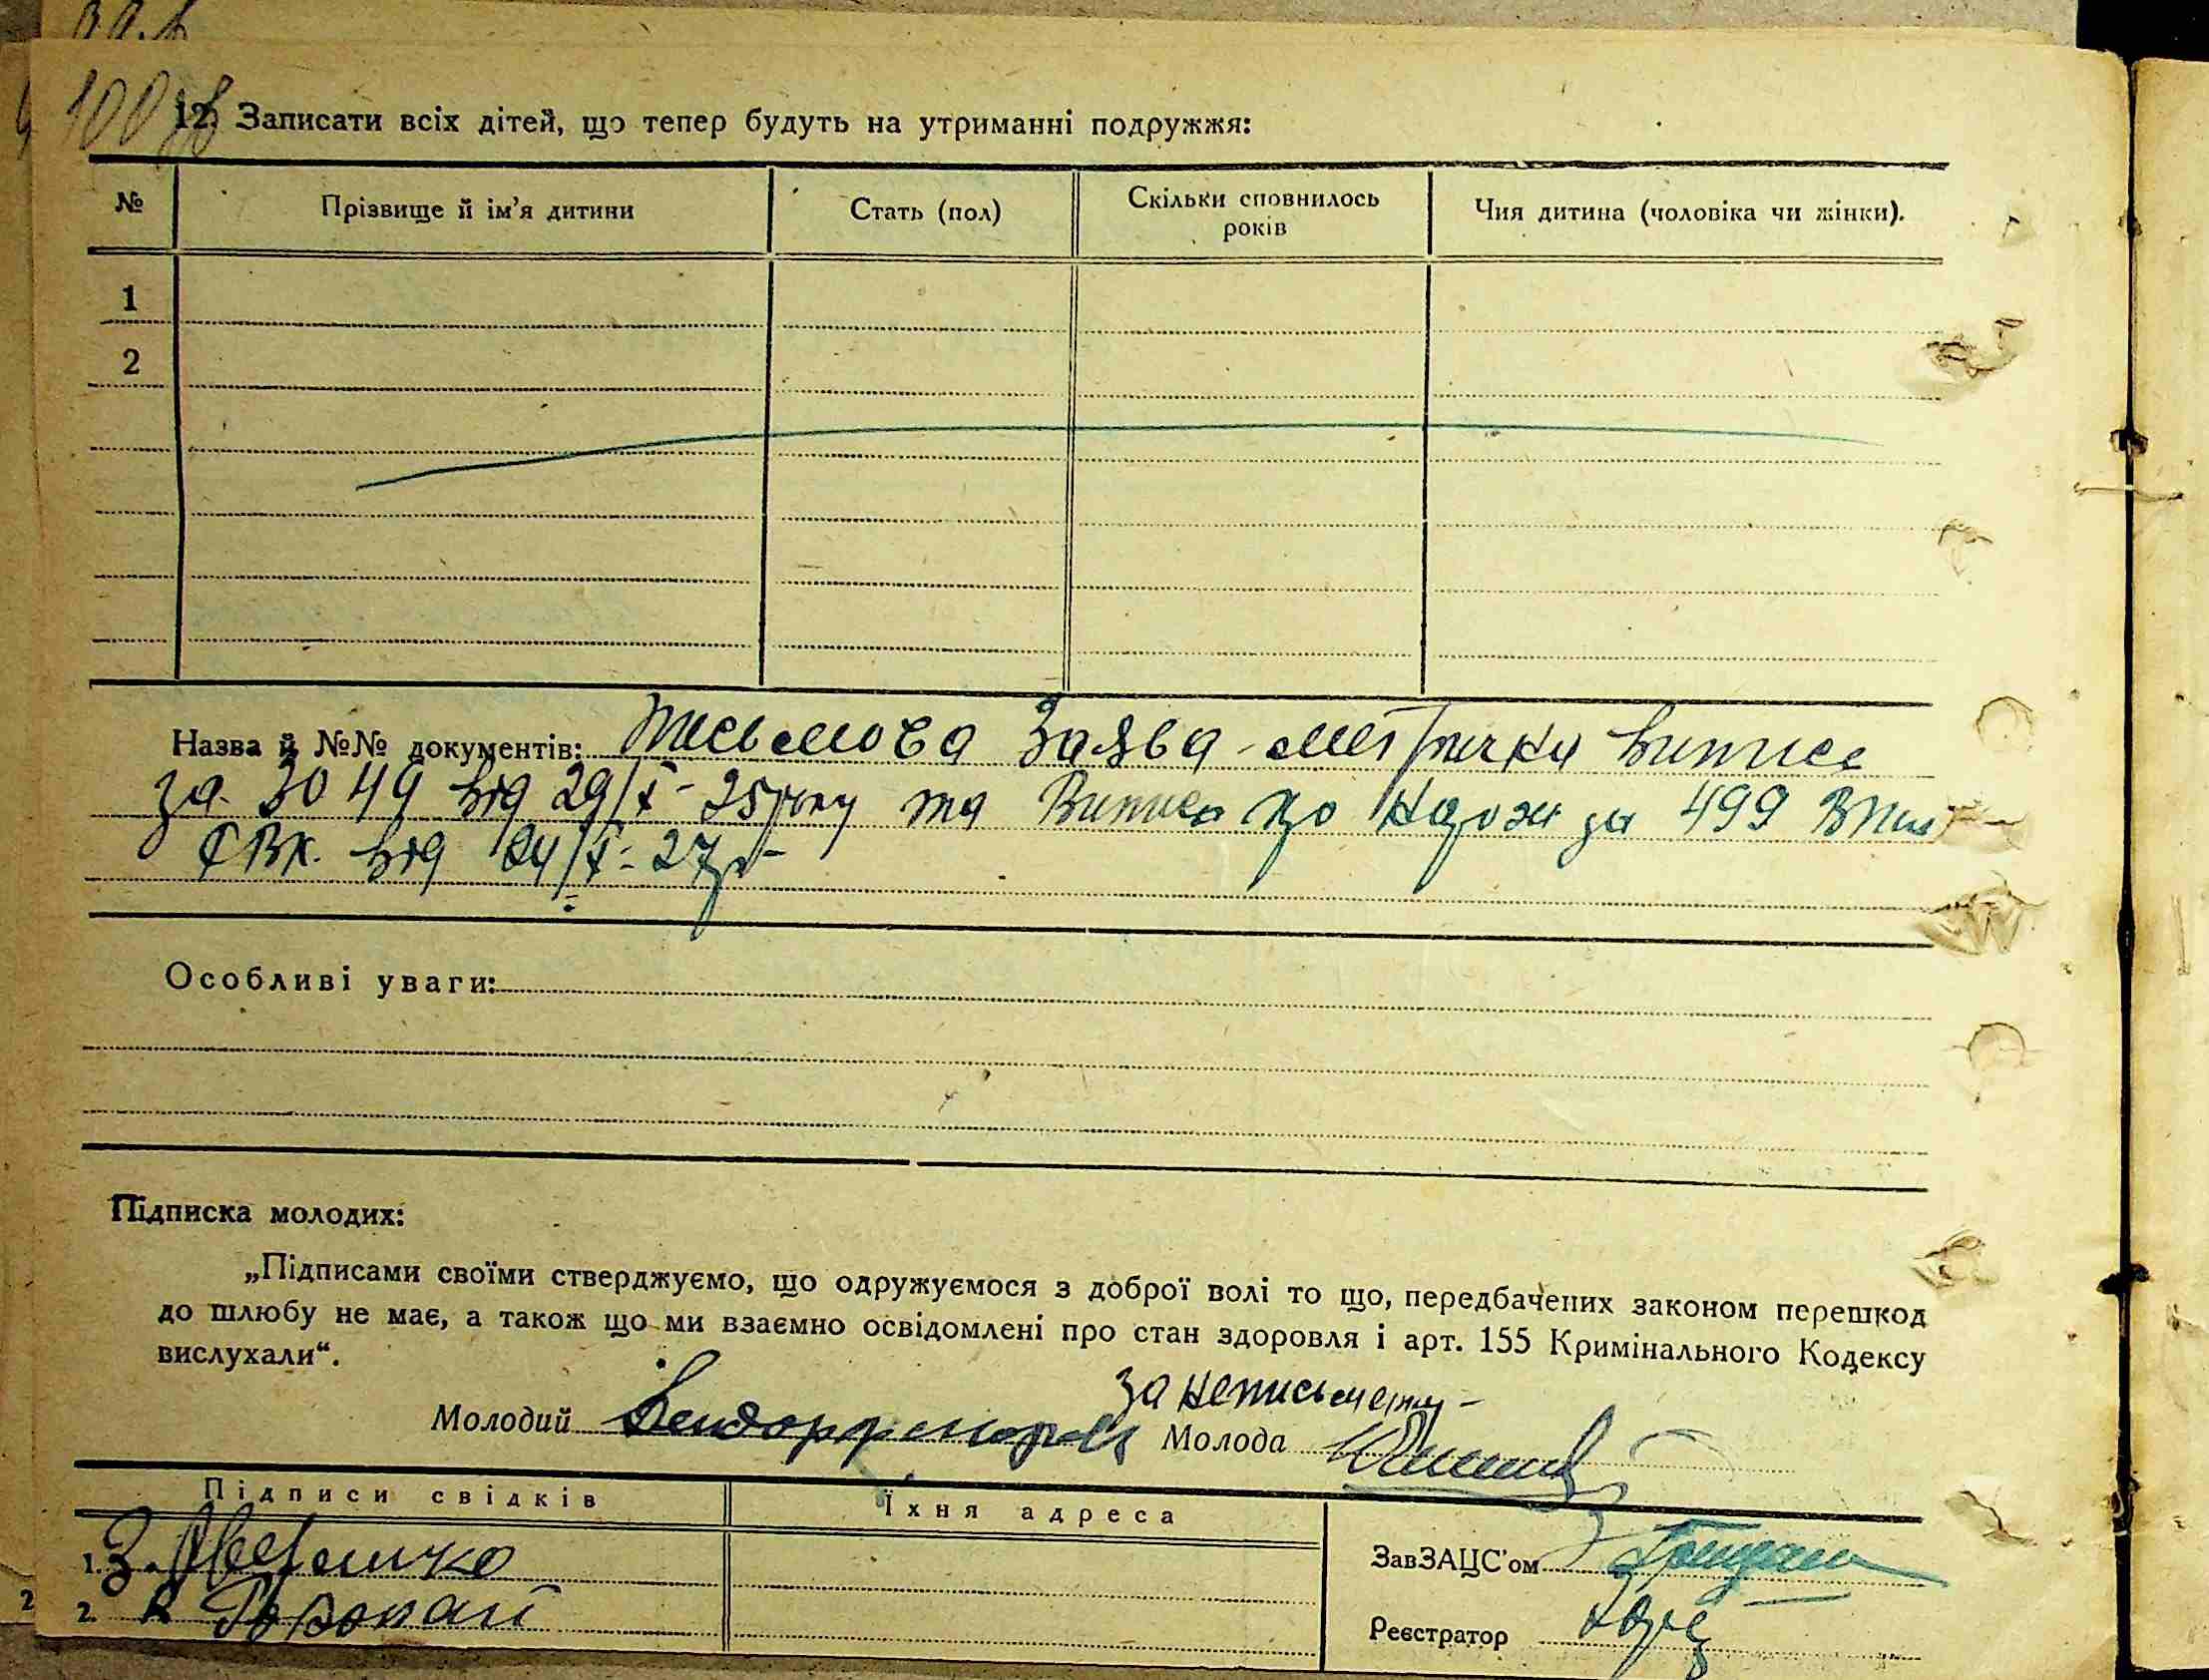 100 зв
12) Записати всіх дітей, що тепер будуть на утриманні подружжя:
№ Прізвище й ім'я дитини Стать (пол) Скільки сповнилось років Чия дитина (чоловіка чи жінки).
1
2
Назва й №№ документів: Письмова Заява
за 3049 від 29/X- 25 року та Випись за 499
від 24/X- 27р
Особливі уваги:
Підписка молодих:
„Підписами своїми стверджуємо, що одружуємося з доброї волі то що, передбачених законом перешкод
до шлюбу не має, а також що ми взаємно освідомлені про стан здоровля і арт. 155 Кримінального Кодексу
вислухали“.
за неписьменну -
Молодий Молода
Підписи свідків Їхня адреса
1. З.
ЗавЗАЦС'ом
2.
Реєстратор
2